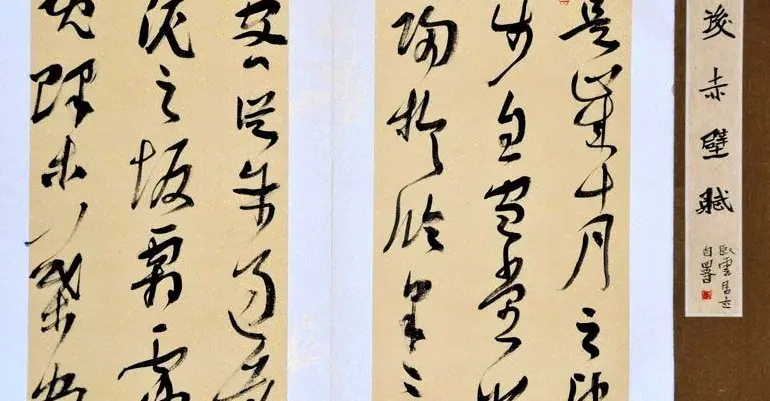 後赤壁賦
臥雲居主
自署
是歲十月之望
步自雪堂將
歸於臨皋二
客從予過黃
泥之坂霜露
既降木葉盡